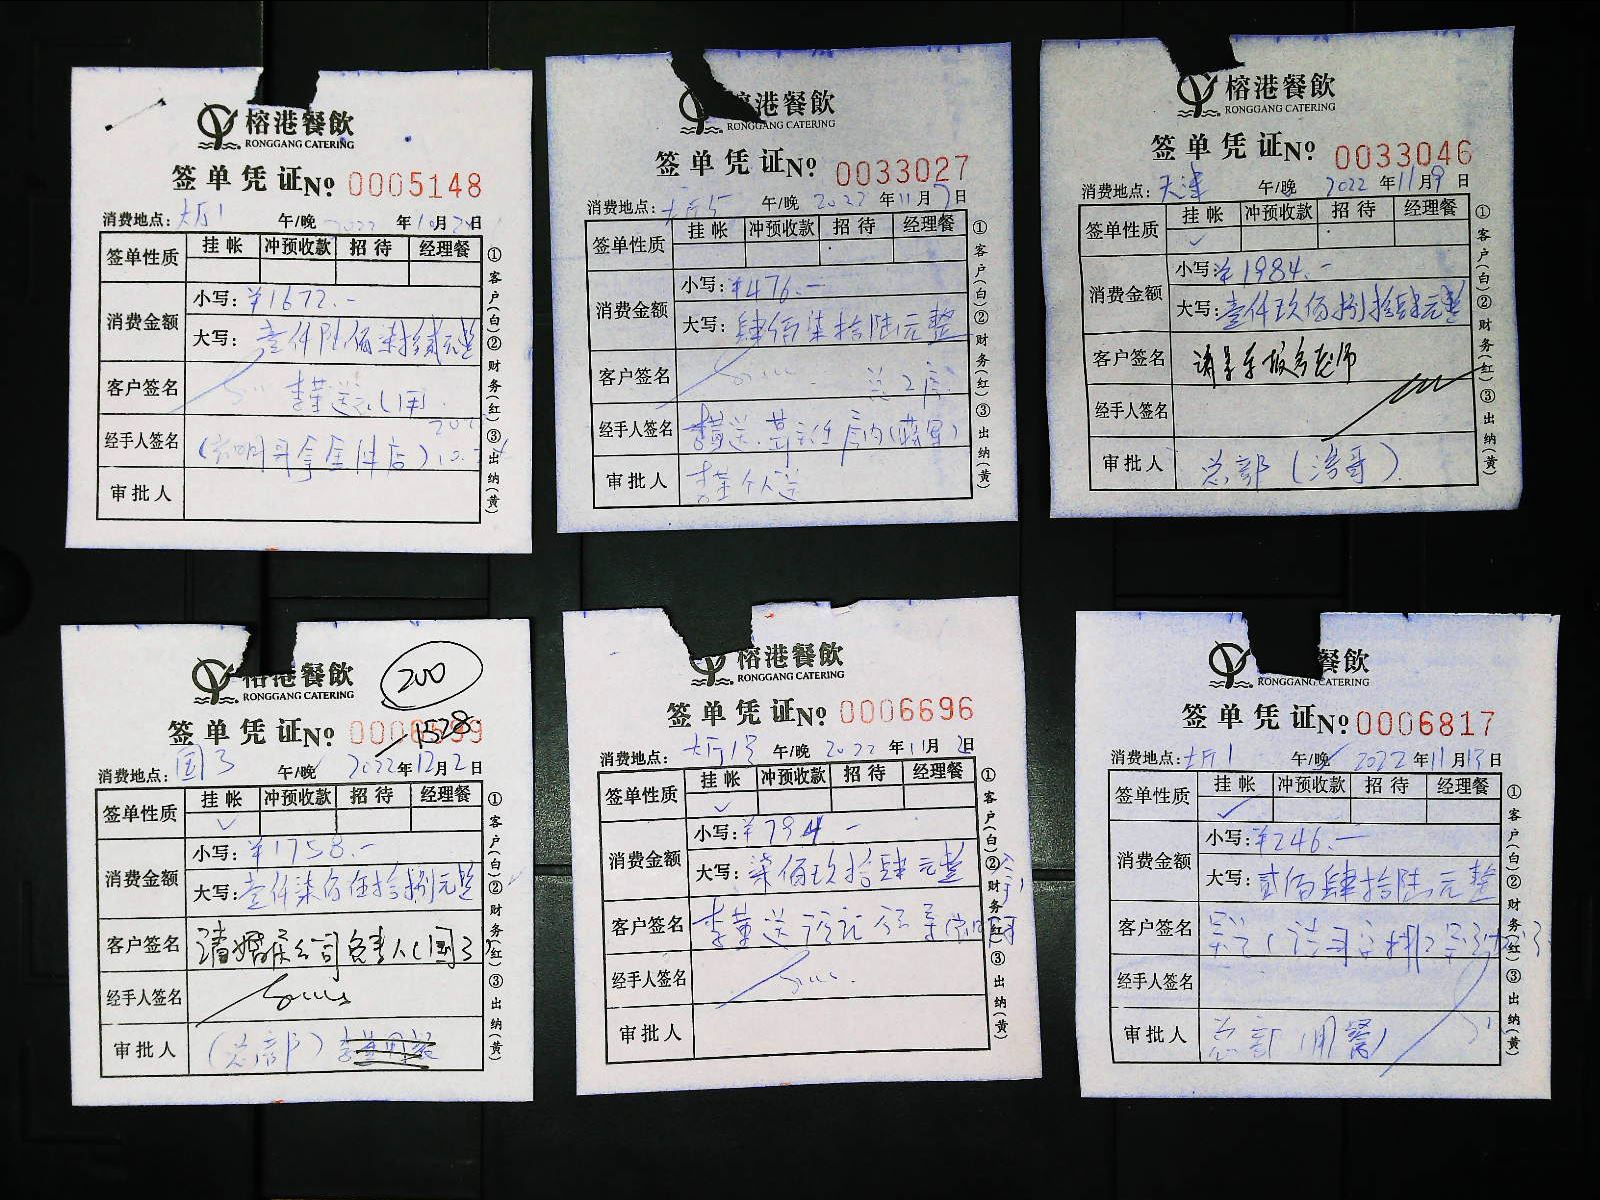 榕港餐飲
RONGGANG CATERING
签单凭证№ 0005148
消费地点：大厅1 午/晚 2022年10月 日
签单性质 挂帐 冲预收款 招待 经理餐
消费金额 小写：¥1672.-
大写：壹仟陆佰柒拾贰元整
客户签名 李董送礼用
经手人签名
审批人
①客户(白)②财务(红)③出纳(黄)
港餐飲
RONGGANG CATERING
签单凭证№ 0033027
消费地点：大厅5 午/晚 2022年11月7日
签单性质 挂帐 冲预收款 招待 经理餐
消费金额 小写：¥476.-
大写：肆佰柒拾陆元整
客户签名
经手人签名
审批人 李董个人送
①客户(白)②财务(红)③出纳(黄)
榕港餐飲
RONGGANG CATERING
签单凭证№ 0033046
消费地点：天津 午/晚 2022年11月9日
签单性质 挂帐 冲预收款 招待 经理餐
✓
消费金额 小写：¥1984.-
大写：壹仟玖佰捌拾肆元整
客户签名
经手人签名
审批人 总部(涛哥)
①客户(白)②财务(红)③出纳(黄)
200
榕港餐飲
RONGGANG CATERING
签单凭证№
1528
消费地点：国3 午/晚 2022年12月2日
签单性质 挂帐 冲预收款 招待 经理餐
✓
消费金额 小写：¥1758.-
大写：壹仟柒佰伍拾捌元整
客户签名 公司负责人(国3)
经手人签名
审批人 (总部)
①客户(白)②财务(红)③出纳(黄)
榕港餐飲
RONGGANG CATERING
签单凭证№ 0006696
消费地点：大厅1号 午/晚 2022年11月2日
签单性质 挂帐 冲预收款 招待 经理餐
✓
消费金额 小写：¥794-
大写：柒佰玖拾肆元整
客户签名 李董送
经手人签名
审批人
①客户(白)②财务(红)③出纳(黄)
餐飲
RONGGANG CATERING
签单凭证№ 0006817
消费地点：大厅1 午/晚 2022年11月13日
签单性质 挂帐 冲预收款 招待 经理餐
✓
消费金额 小写：¥246.-
大写：贰佰肆拾陆元整
客户签名
经手人签名
审批人 总部(用餐)
①客户(白)②财务(红)③出纳(黄)